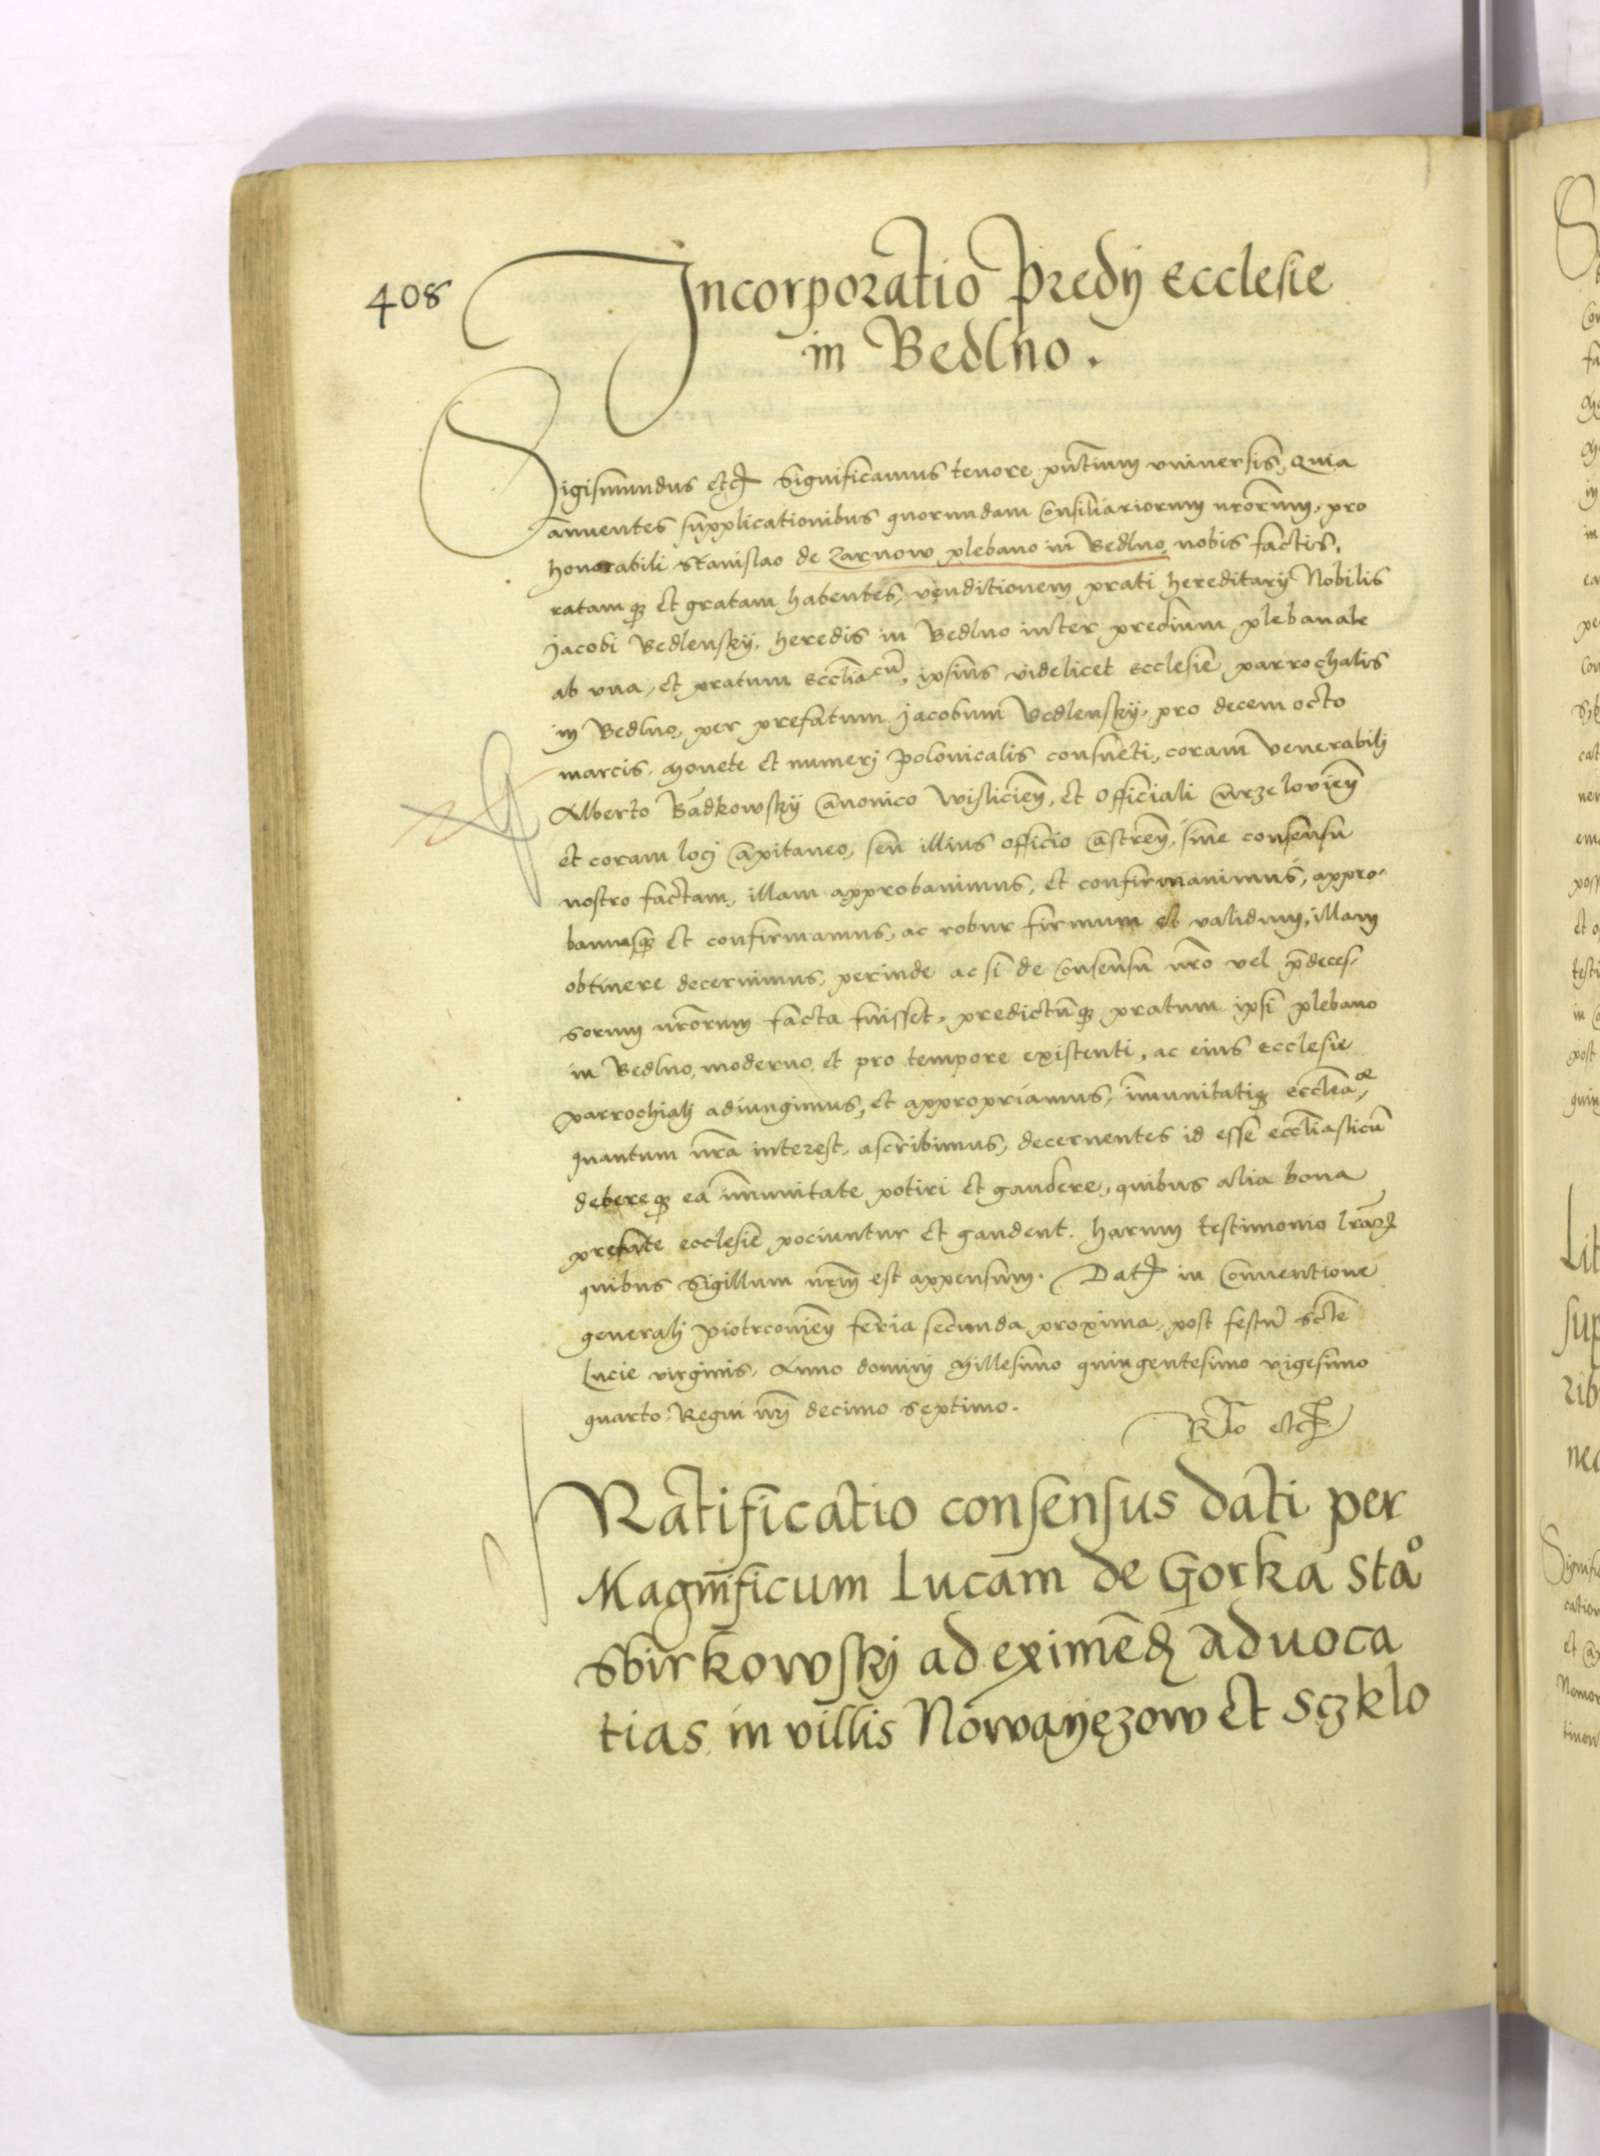 408
Incorporatio Predij Ecclesie
in Bedlno.
Sigismundus etc Significamus tenore pntium vniuersis, Quia
annuentes supplicationibus quorundam Consiliariorum nrorum, pro
honorabili Stanislao de Zarnow plebano in Bedlno, nobis factis,
ratamq et gratam habentes, venditionem prati hereditarij Nobilis
Jacobi Bedlenskij, heredis in Bedlno inter predium plebanale
ab vna, et pratum eccliacu, ipsius videlicet Ecclesie parrochalis
in Bedlno, per prefatum Jacobum Bedlenskij, pro decem octo
marcis, Monete et numerj Polonicalis consueti, coram Venerabilj
Alberto Badkowskij Canonico Wislicien, et Officiali Curzelovien
et coram locj Capitaneo, seu illius officio Castren, sine consensu
nostro factam, illam approbauimus, et confirmauimus, appro-
bamusq et confirmamus, ac robur firmum et validum, illam
obtinere decernimus, perinde ac si de Consensu nro vel predeces-
sorum nrorum facta fuisset, predictumq pratum ipsi plebano
in Bedlno, moderno, et pro tempore existenti, ac eius Ecclesie
parrochialj adiungimus, et appropriamus, imunitatiq ecclea,
quantum nra interest, ascribimus, decernentes id esse eccliasticu
debereq ea imunitate potiri et gaudere, quibus alia bona
prefate ecclesie pociuntur et gaudent. Harum testimonio lrarum
quibus Sigillum nrm est appensum. Dat in Conuentione
generalj Piotrcovien feria secunda proxima, post festu scte
Lucie virginis, Anno dominj Millesimo quingentesimo vigesimo
quarto: Regni nrj decimo septimo.
Rlo etc
Ratificatio consensus dati per
Magnificum Lucam de Gorka Stao
Sbirkowskj ad eximend aduoca
tias in villis Nowayezow et Sczklo